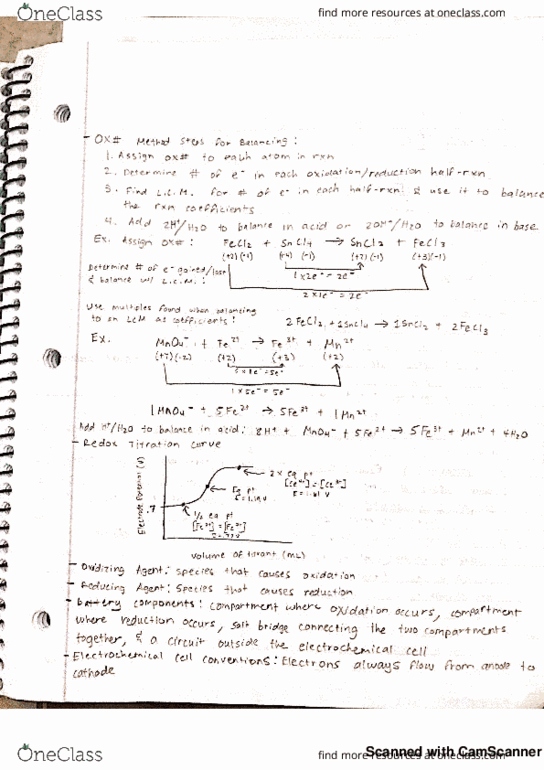 OneClass
find more resources at oneclass.com
- OX# Method Steps for Balancing:
1. Assign ox# to each atom in rxn
2. Determine # of e⁻ in each oxidation/reduction half-rxn
3. Find L.C.M. for # of e⁻ in each half-rxn & use it to balance
the rxn coefficients
4. Add 2H⁺/H₂O to balance in acid or 2OH⁻/H₂O to balance in base
Ex. Assign OX#: FeCl₂ + SnCl₄ → SnCl₂ + FeCl₃
(+2)(-1) (+4)(-1) (+2)(-1) (+3)(-1)
Determine # of e⁻ gained/lost
& balance w/ L.C.M.:
1x2e⁻ = 2e⁻
2x1e⁻ = 2e⁻
Use multiples found when balancing
to an LCM as coefficients: 2FeCl₂ + 1SnCl₄ → 1SnCl₂ + 2FeCl₃
Ex. MnO₄⁻ + Fe²⁺ → Fe³⁺ + Mn²⁺
(+7)(-2) (+2) (+3) (+2)
5x1e⁻=5e⁻
1x5e⁻ = 5e⁻
1MnO₄⁻ + 5Fe²⁺ → 5Fe³⁺ + 1Mn²⁺
Add H⁺/H₂O to balance in acid: 8H⁺ + MnO₄⁻ + 5Fe²⁺ → 5Fe³⁺ + Mn²⁺ + 4H₂O
- Redox Titration Curve
Electrode Potential (V)
2x eq pt
eq pt
.7
1/2 eq pt
Volume of titrant (mL)
- Oxidizing Agent: Species that causes oxidation
- Reducing Agent: Species that causes reduction
- Battery components: compartment where oxidation occurs, compartment
where reduction occurs, salt bridge connecting the two compartments
together, & a circuit outside the electrochemical cell
- Electrochemical cell conventions: Electrons always flow from anode to
cathode
OneClass
find more resources at oneclass.com
Scanned with CamScanner